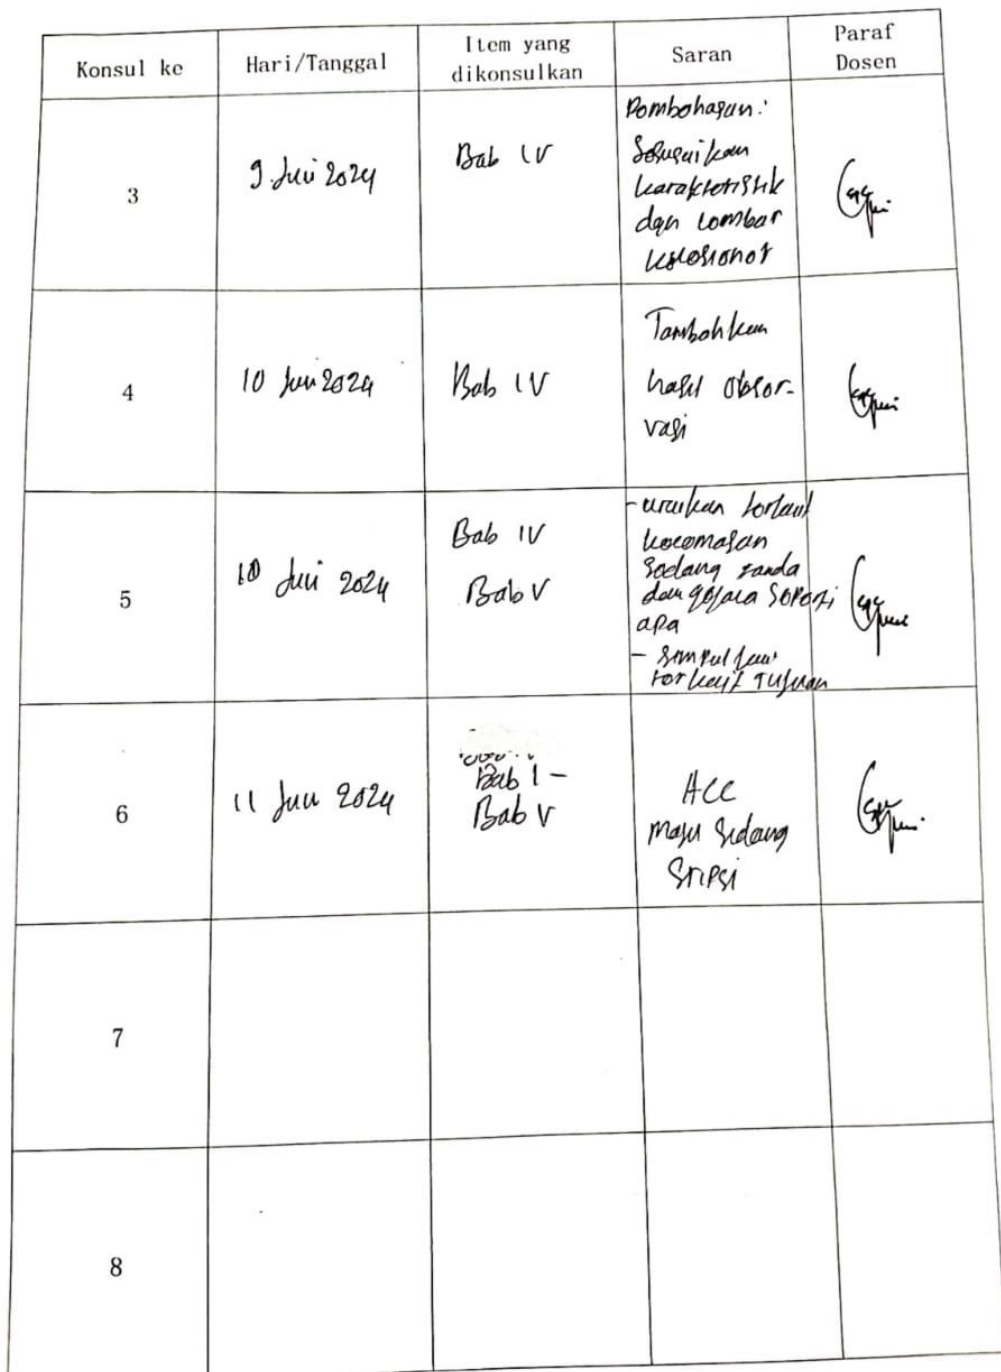 Konsul ke Hari/Tanggal Item yang dikonsulkan Saran Paraf Dosen
3 9 Juni 2024 Bab IV
Pembahasan:
Sesuaikan
karakteristik
dgn lembar
4 10 Juni 2024 Bab IV
Tambahkan
hasil obser-
vasi
5 10 Juni 2024 Bab IV
Bab V
- uraikan terkait
kecemasan
sedang tanda
dan gejala seperti
apa
- simpulkan
terkait Tujuan
6 11 Juni 2024 Bab I -
Bab V
ACC
maju Sidang
Sripsi
7
8